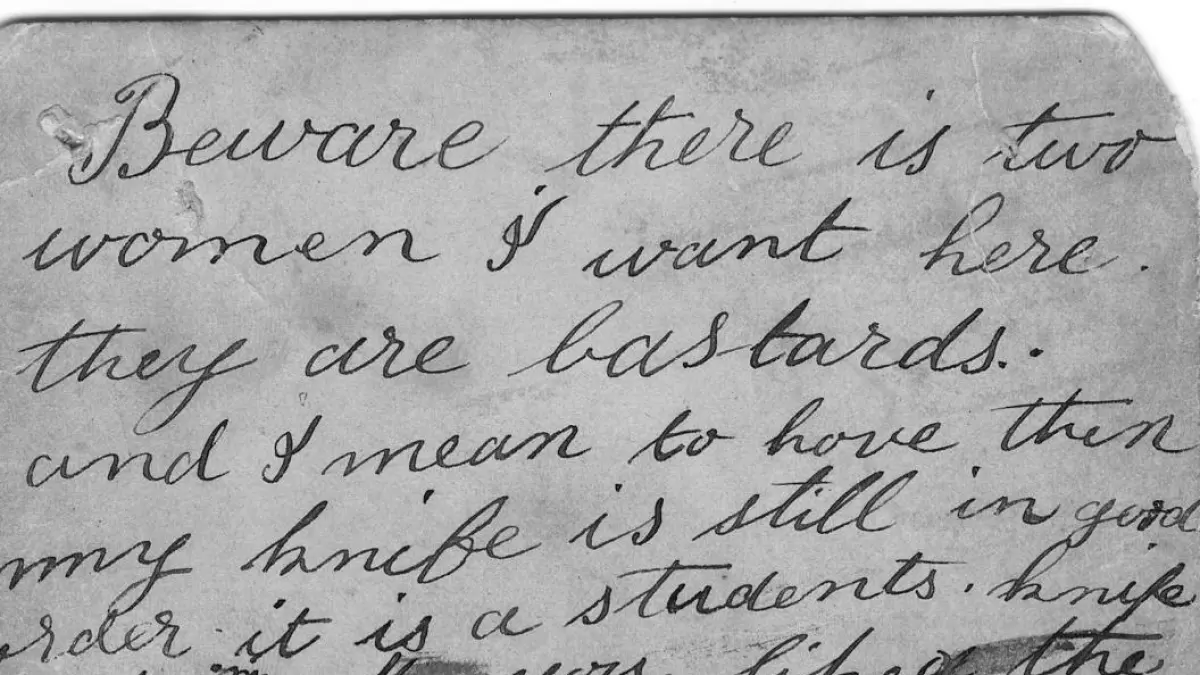 Beware there is two
women I want here.
they are bastards.
and I mean to have then
my knife is still in good
rder it is a students. knife
liked the